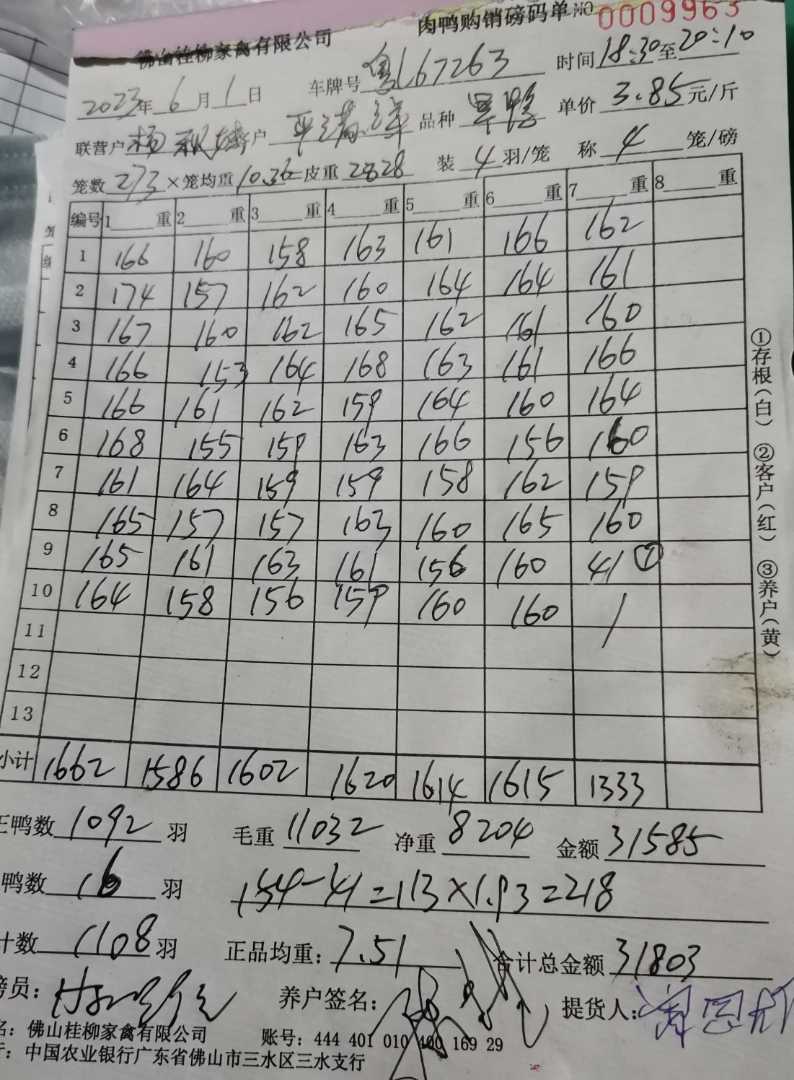 佛山桂柳家禽有限公司 肉鸭购销磅码单 NO 0009963
2023年6月1日 车牌号 粤L67263 时间 18:30至20:10
联营户 杨 户 品种 单价 3.85元/斤
笼数 273×笼均重 10.36=皮重 2828 装 4 羽/笼 称 4 笼/磅
编号 1 重 2 重 3 重 4 重 5 重 6 重 7 重 8 重
1 166 160 158 163 161 166 162
2 174 157 162 160 164 164 161
3 167 160 162 165 162 161 160
4 166 153 164 168 163 161 166
5 166 161 162 159 164 160 164
6 168 155 159 163 166 156 160
7 161 164 159 159 158 162 159
8 165 157 157 163 160 165 160
9 165 161 163 161 156 160 41 ①
10 164 158 156 159 160 160 /
11
12
13
小计 1662 1586 1602 1620 1614 1615 1333
正鸭数 1092 羽 毛重 11032 净重 8204 金额 31585
鸭数 16 羽 154-41=113×1.93=218
计数 1108 羽 正品均重: 7.51 合计总金额 31803
磅员: 养户签名: 提货人:
名: 佛山桂柳家禽有限公司 账号: 444 401 010 400 169 29
行: 中国农业银行广东省佛山市三水区三水支行
①存根(白) ②客户(红) ③养户(黄)